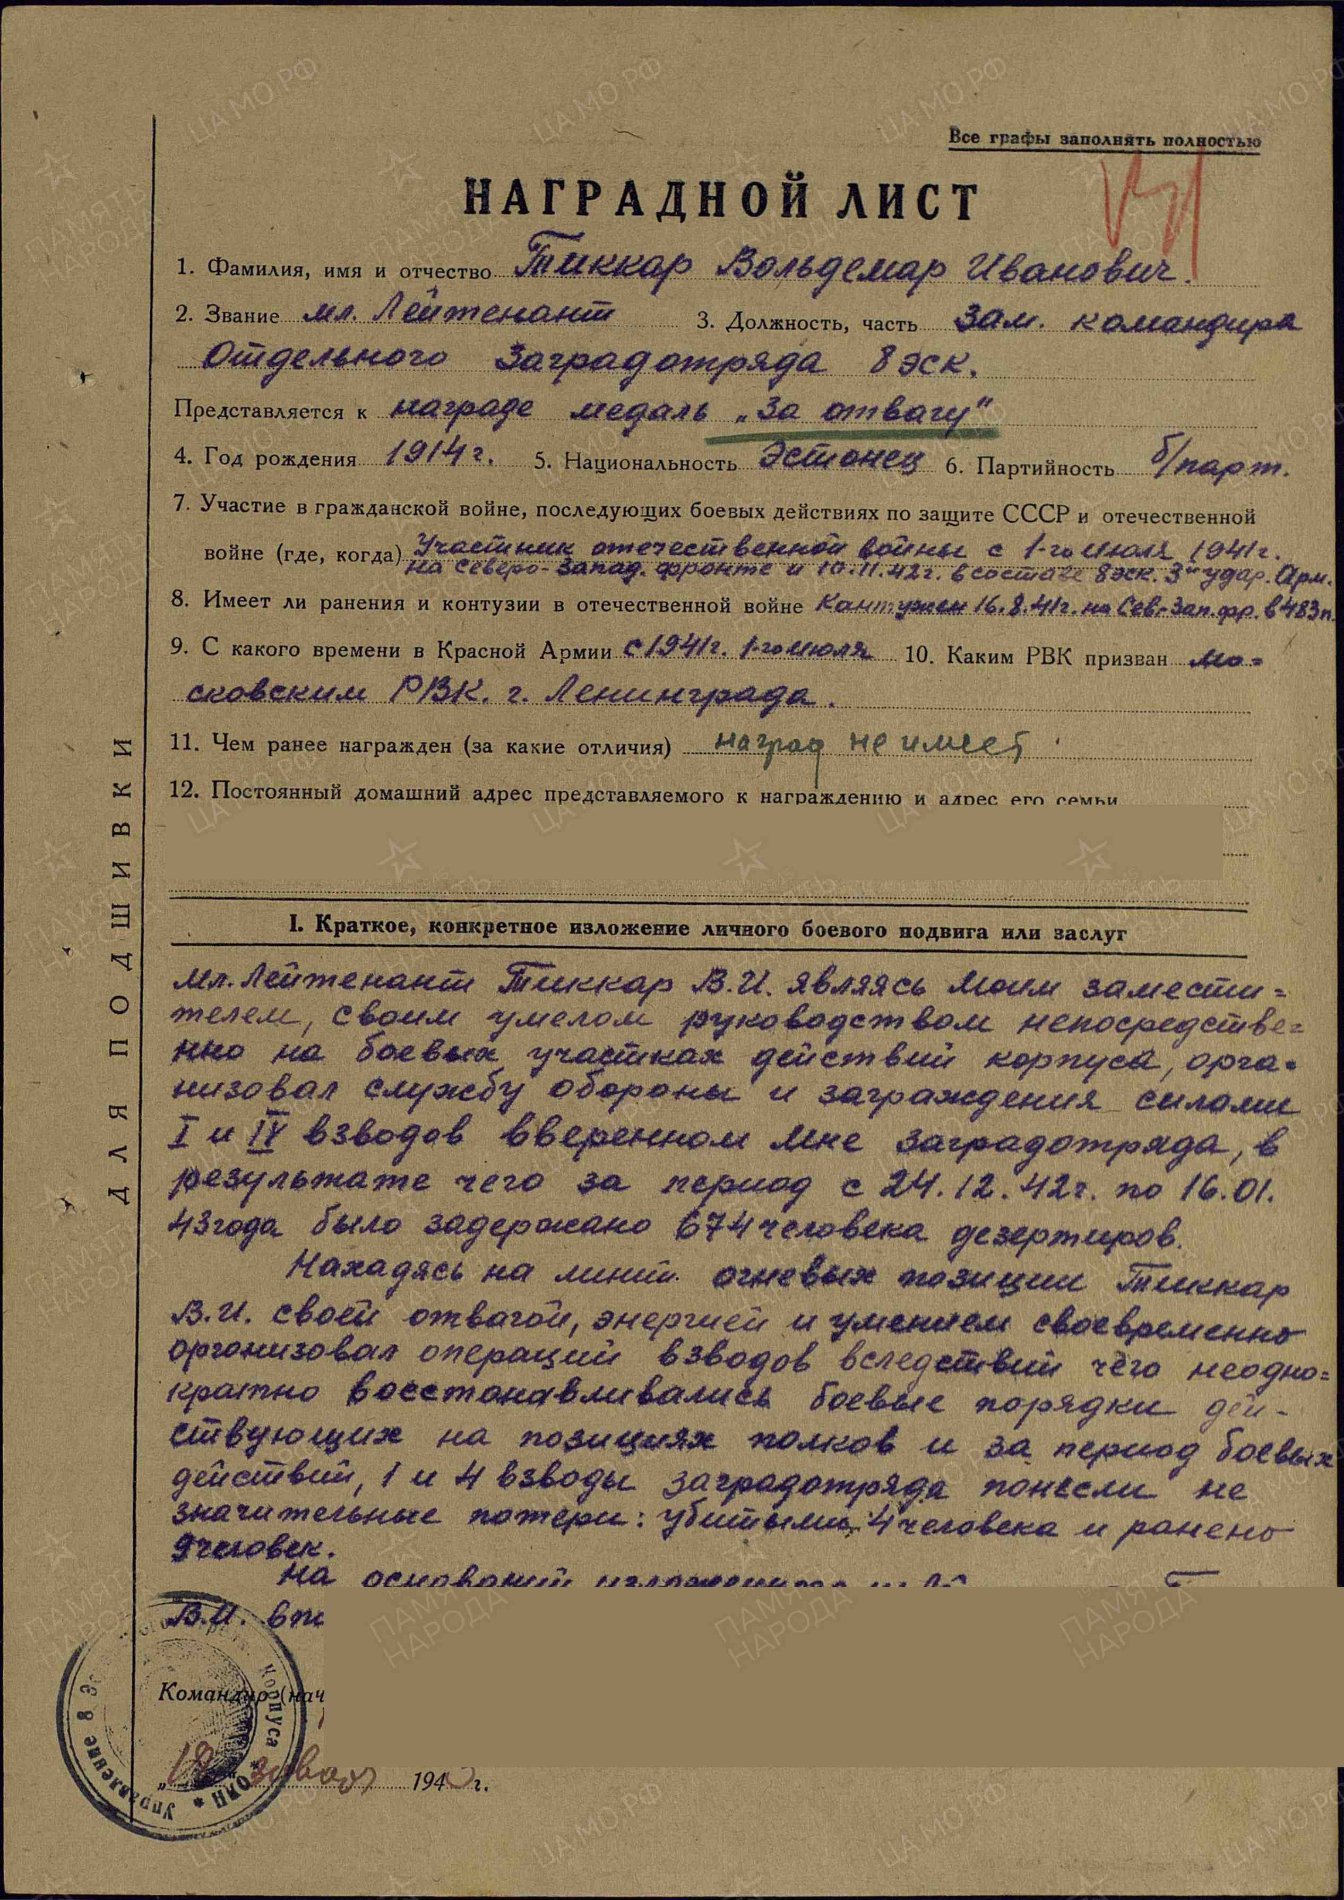 Все графы заполнять полностью
НАГРАДНОЙ ЛИСТ
1. Фамилия, имя и отчество Тиккар Вольдемар Иванович.
2. Звание мл. Лейтенант 3. Должность, часть Зам. командира
Отдельного Заградотряда 8 эск.
Представляется к награде медаль „За отвагу"
4. Год рождения 1914 г. 5. Национальность Эстонец 6. Партийность б/парт.
7. Участие в гражданской войне, последующих боевых действиях по защите СССР и отечественной
войне (где, когда) Участник отечественной войны с 1-го июля 1941г.
на Северо-Запад. фронте и 10.11.42г. в составе 8 эск. 3й удар. Арм.
8. Имеет ли ранения и контузии в отечественной войне Кантужен 16.8.41г. на Сев-Зап.фр. в 483п.
9. С какого времени в Красной Армии с 1941г. 1-го июля 10. Каким РВК призван Мо=
сковским РВК. г. Ленинграда.
11. Чем ранее награжден (за какие отличия) наград не имеет
12. Постоянный домашний адрес представляемого к награждению и адрес его семьи
I. Краткое, конкретное изложение личного боевого подвига или заслуг
Мл. Лейтенант Тиккар В.И. являясь Моим замести=
телем, своим умелом руководством непосредстве=
нно на боевых участках действий корпуса, орга=
низовал службу обороны и заграждения силами
I и IV взводов вверенном мне заградотряда, в
результате чего за период с 24.12.42г. по 16.01.
43 года было задержано 674 человека дезертиров.
Нахадясь на линии огневых позиции Тиккар
В.И. своей отвагой, энергией и умением своевременно
организовал операций взводов вследствий чего неодно=
кратно восстонавливались боевые порядки дей-
ствующих на позициях полков и за период боевых
действий, 1 и 4 взводы заградотряда понесли не
значительные потери: убитыми 4 человека и ранено
9 человек.
На оснований изложенного
В.И.
Командир (нач
18 января 194 г.
Управление 8 Корпуса
ДЛЯ ПОДШИВКИ
ПАМЯТЬ НАРОДА
ЦАМО РФ